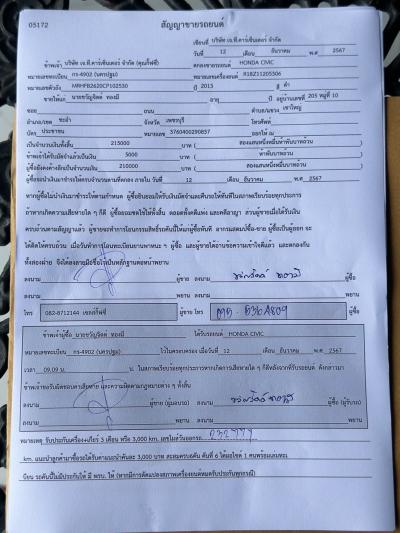 05172
สัญญาขายรถยนต์
เขียนที่ บริษัท เจ.ที.คาร์เซ็นเตอร์ จำกัด
วันที่ 12 เดือน ธันวาคม พ.ศ 2567
ข้าพเจ้า บริษัท เจ.ที.คาร์เซ็นเตอร์ จำกัด ตกลงขายรถยนต์ HONDA CIVIC
หมายเลขทะเบียน กร-4902 (นครปฐม) หมายเลขเครื่องยนต์ R18Z11205306
หมายเลขตัวถัง MRHFB2620CP102530 ปี 2013 สี ดำ
ขายให้แก่ นายขวัญจิตต์ ทองมี อายุ ปี อยู่บ้านเลขที่ 205 หมู่ที่ 10
ซอย ถนน ตำบล/แขวง เขาใหญ่
อำเภอ/เขต ชะอำ จังหวัด เพชรบุรี โทรศัพท์
บัตร ประชาชน หมายเลข 3760400290857 ออกให้ ณ
เป็นจำนวนเงินทั้งสิ้น 215000 บาท ( สองแสนหนึ่งหมื่นห้าพันบาทถ้วน )
ข้าพเจ้าได้รับมัดจำแล้วเป็นเงิน 5000 บาท ( ห้าพันบาทถ้วน )
ผู้ซื้อยังคงค้างอีกเป็นจำนวนเงิน 210000 บาท ( สองแสนหนึ่งหมื่นบาทถ้วน )
ผู้ซื้อจะนำเงินมาชำระให้ครบจำนวนตามที่ตกลง ภายใน วันที่ 12 เดือน ธันวาคม พ.ศ 2567
หากผู้ซื้อไม่นำเงินมาชำระให้ตามกำหนด ผู้ซื้อยินยอมให้ริบเงินมัดจำและคืนรถให้ทันทีในสภาพเรียบร้อยทุกประการ
ถ้าหากเกิดความเสียหายใด ๆ ก็ดี ผู้ซื้อยอมชดใช้ให้ทั้งสิ้น ตลอดทั้งคดีแพ่ง และคดีอาญา ส่วนผู้ขายเมื่อได้รับเงิน
ครบถ้วนตามสัญญาแล้ว ผู้ขายจะทำการโอนกรรมสิทธิ์รถคันนี้ให้แก่ผู้ซื้อทันที
ทั้งสองฝ่าย จึงได้ลงลายมือชื่อไว้เป็นหลักฐานต่อหน้าพยาน
ลงนาม ผู้ขาย ลงนาม ผู้ซื้อ
ลงนาม พยาน ลงนาม พยาน
โทร 082-8712144 ผู้ขาย โทร ผู้ซื้อ
ข้าพเจ้าผู้ซื้อ นายขวัญจิตต์ ทองมี ได้รับรถยนต์ HONDA CIVIC
หมายเลขทะเบียน กร-4902 (นครปฐม) ไว้ในครอบครอง เมื่อวันที่ 12 เดือน ธันวาคม พ.ศ 2567
เวลา 09.09 น. น. ในสภาพเรียบร้อยทุกประการหากเกิดการเสียหายใด ๆ ก็ดีหลังจากที่รับรถยนต์ ดังกล่าวมา
ข้าพเจ้าขอรับผิดชอบค่าเสียหาย และความผิดตามกฎหมายต่าง ๆ ทั้งสิ้น
ลงนาม ผู้ขาย (ผู้มอบรถ) ลงนาม ผู้ซื้อ (ผู้รับรถ)
ลงนาม พยาน ลงนาม พยาน
หมายเหตุ รับประกันเครื่อง+เกียร์ 3 เดือน หรือ 3,000 km. เลขไมล์วันออกรถ
km. แนะนำลูกค้ามาซื้อรถได้รับค่าแนะนำคันละ 3,000 บาท สะสมครบ6คัน คันที่ 6 ได้มอไซค์ 1 คัน